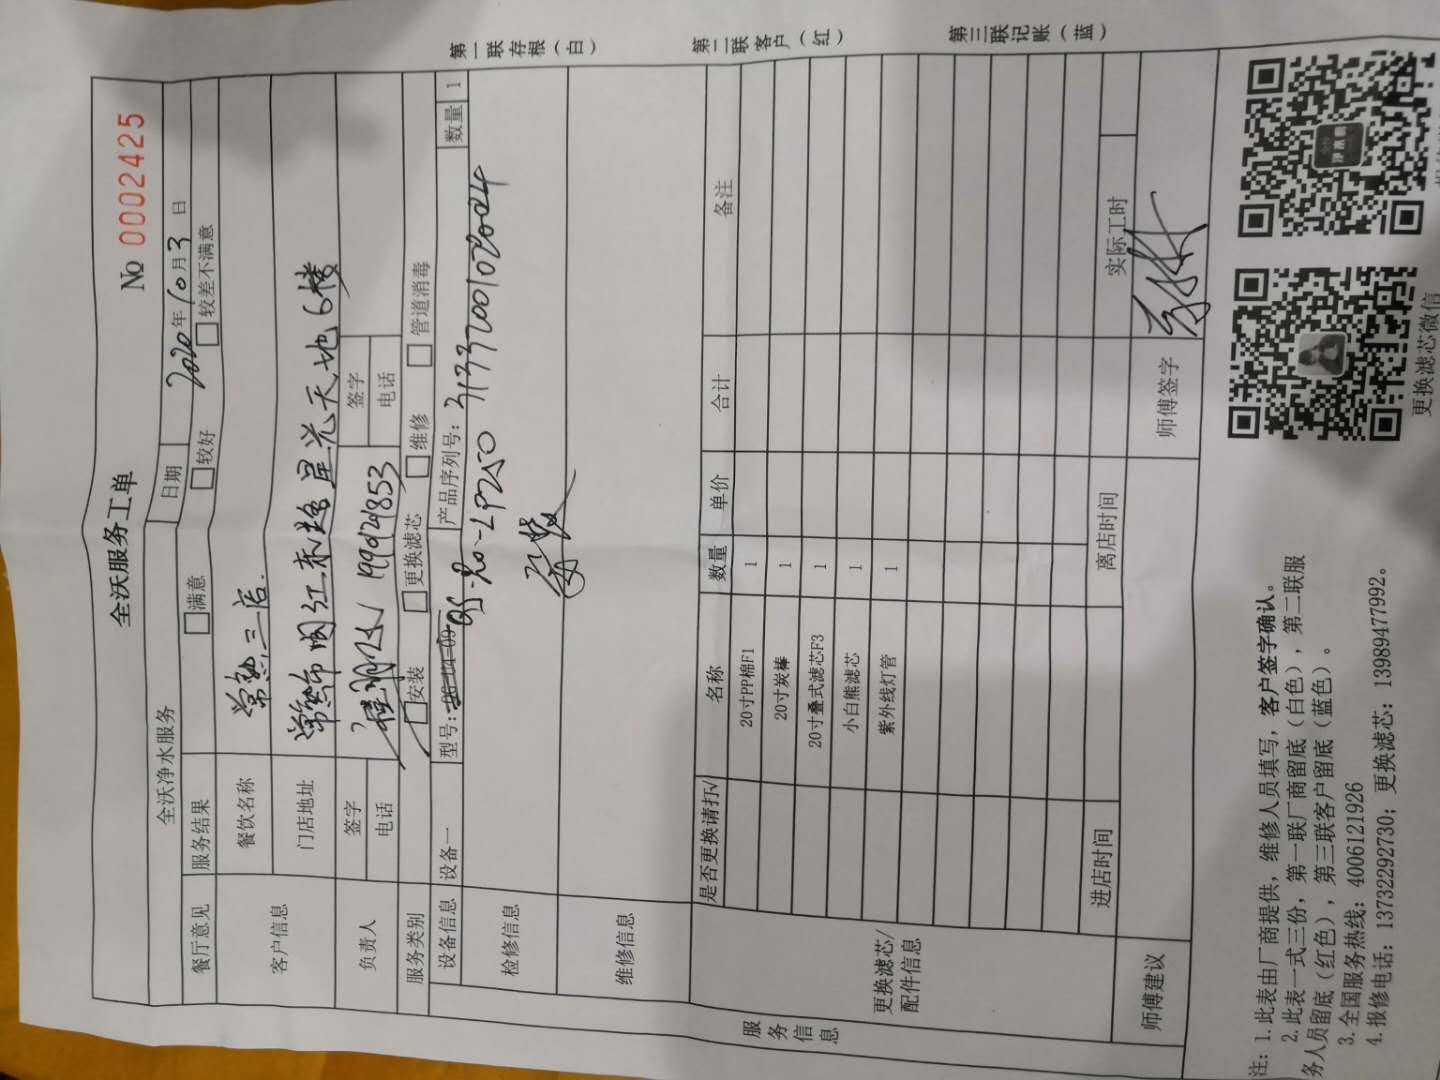 第一联存根（白）
第二联客户（红）
第三联记账（蓝）
全沃服务工单
No 0002425
全沃净水服务 日期 2020年10月3日
餐厅意见 服务结果 □满意 □较好 □较差不满意
客户信息 餐饮名称 常熟三店.
门店地址 常熟市闽江东路星光天地6楼
负责人 签字 签字
电话 19902124853 电话
服务类别 □安装 □更换滤芯 □维修 □管道消毒
设备信息 设备一 型号: 产品序列号: 数量 1
检修信息 3133200102024
维修信息
服务信息
更换滤芯/配件信息
是否更换请打√ 名称 数量 单价 合计 备注
20寸PP棉F1 1
20寸炭棒 1
20寸叠式滤芯F3 1
小白熊滤芯 1
紫外线灯管 1
进店时间 离店时间 实际工时
师傅建议 师傅签字
注: 1.此表由厂商提供，维修人员填写，客户签字确认。
2.此表一式三份，第一联厂商留底（白色），第二联服
务人员留底（红色），第三联客户留底（蓝色）。
3.全国服务热线: 4006121926
4.报修电话: 13732292730; 更换滤芯: 13989477992。
更换滤芯微信